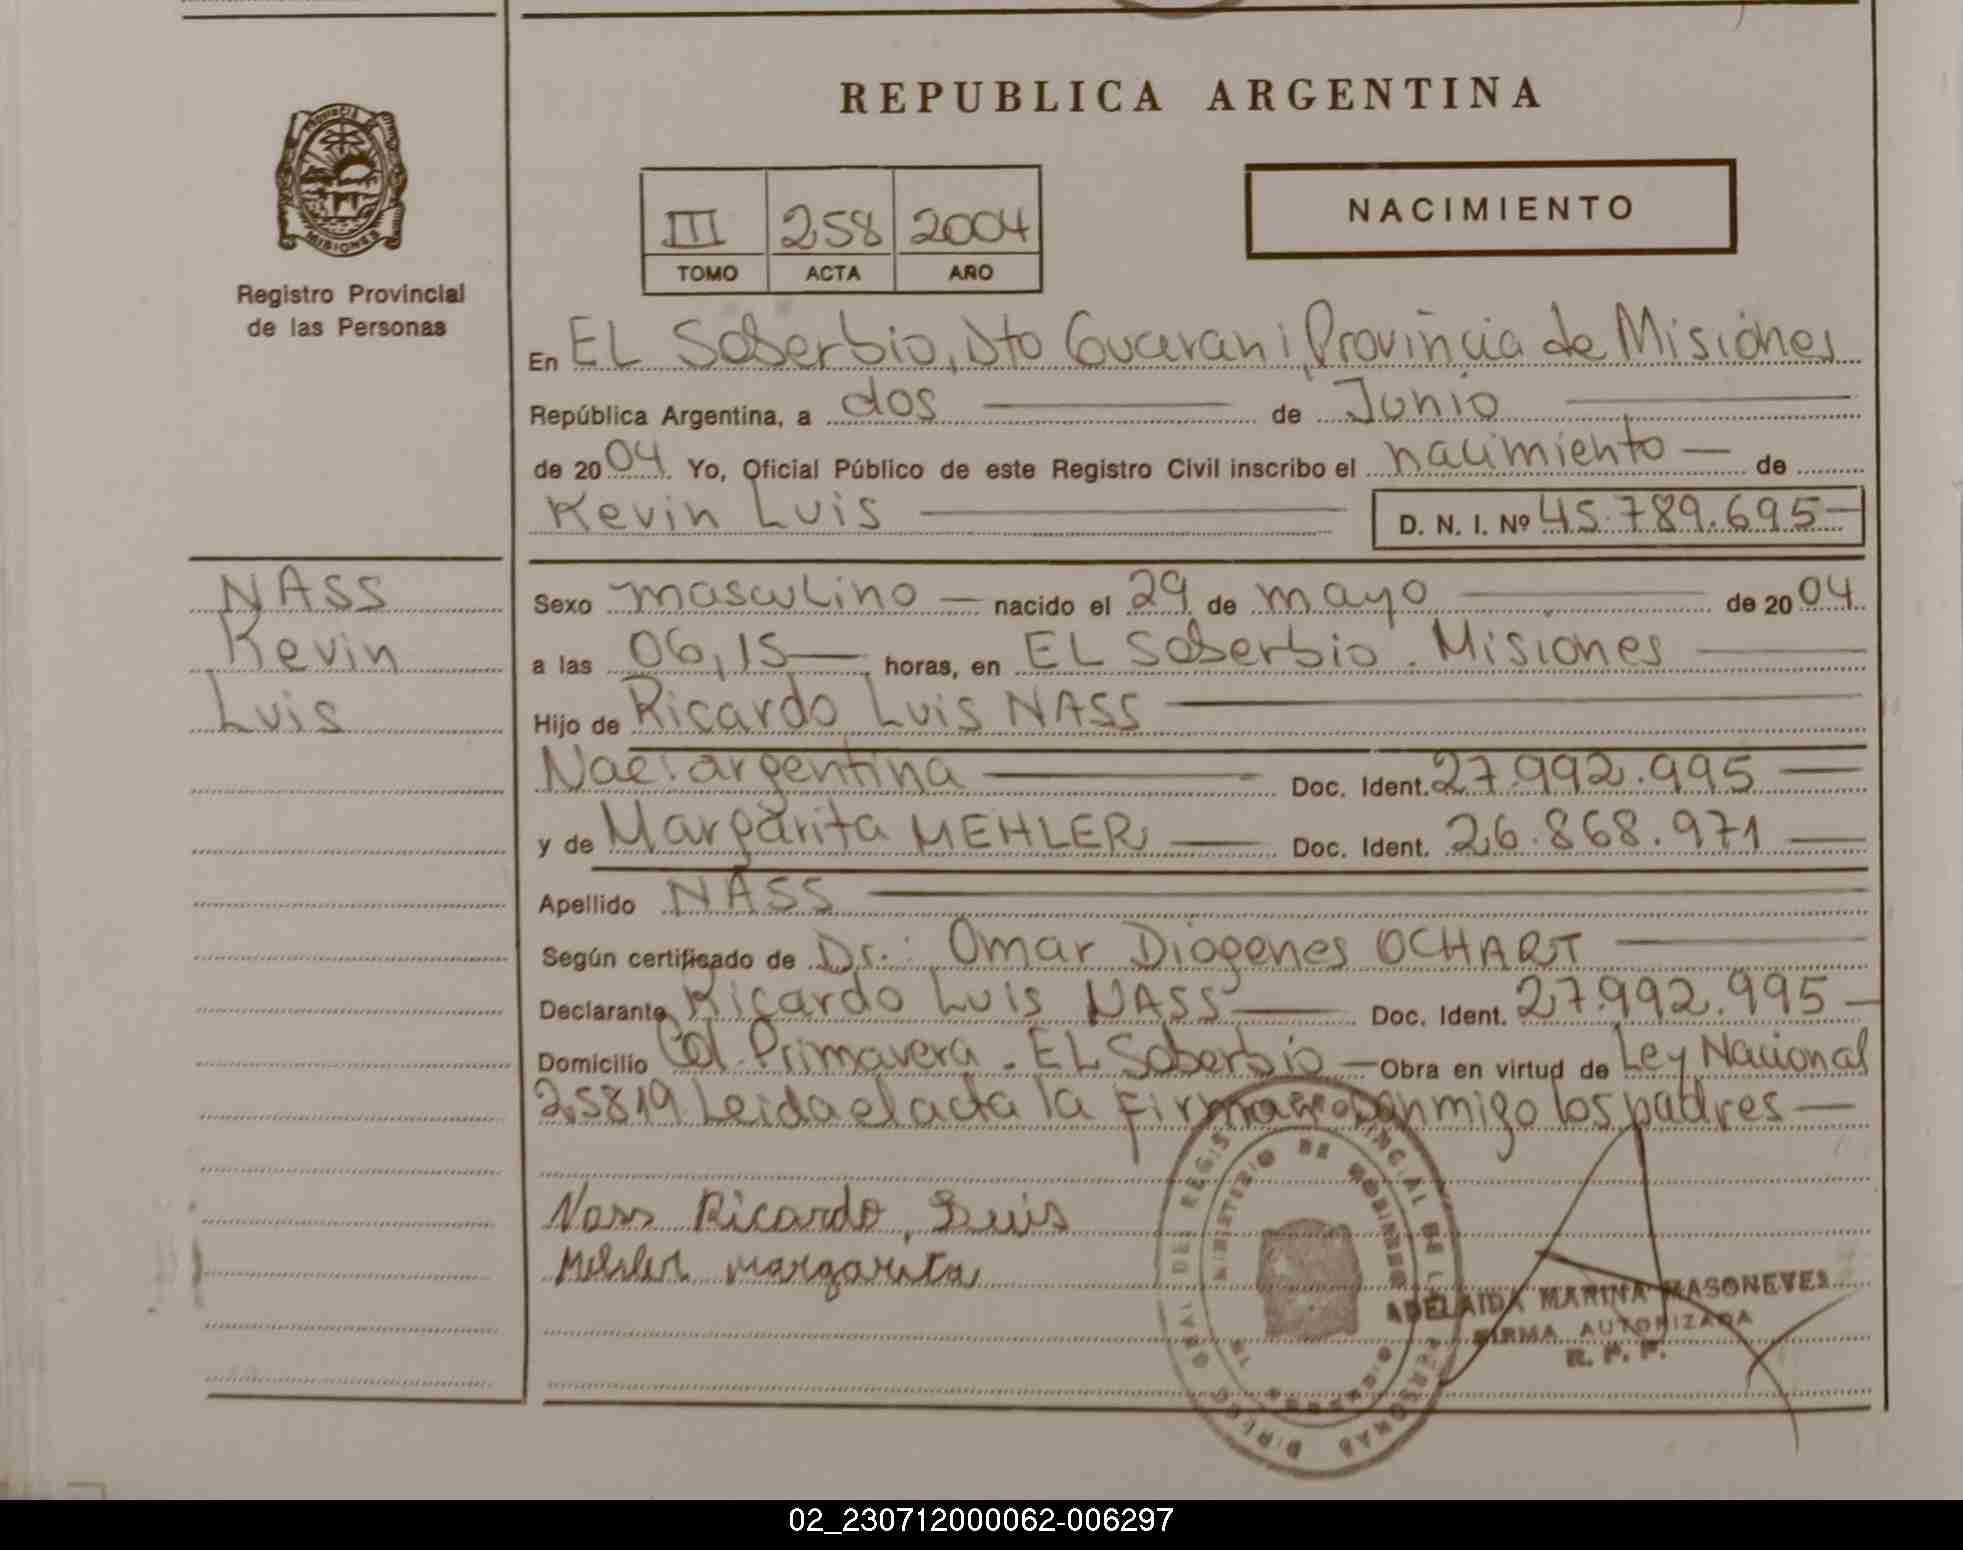 REPUBLICA ARGENTINA
PROVINCIA DE
MISIONES
Registro Provincial
de las Personas
III 258 2004
TOMO ACTA AÑO
NACIMIENTO
En EL Soberbio, Dto Guarani, Provincia de Misiones
República Argentina, a dos de Junio
de 2004 Yo, Oficial Público de este Registro Civil inscribo el nacimiento — de
Kevin Luis D. N. I. Nº 45.789.695—
NASS
Kevin
Luis
Sexo masculino — nacido el 29 de mayo de 2004
a las 06,15— horas, en EL Soberbio. Misiones
Hijo de Ricardo Luis NASS
Nac: argentina Doc. Ident. 27.992.995
y de Margarita MEHLER Doc. Ident. 26.868.971
Apellido NASS
Según certificado de Dr.: Omar Diogenes OCHART
Declarante Ricardo Luis NASS Doc. Ident. 27.992.995
Domicilio Col. Primavera - EL Soberbio — Obra en virtud de Ley Nacional
25819 Leida el acta la firman conmigo los padres —
Nass Ricardo, Luis
Mehler margarita
MINISTERIO DE GOBIERNO
ADELAIDA MARINA MASONEVES
FIRMA AUTORIZADA
R. P. P.
02_230712000062-006297